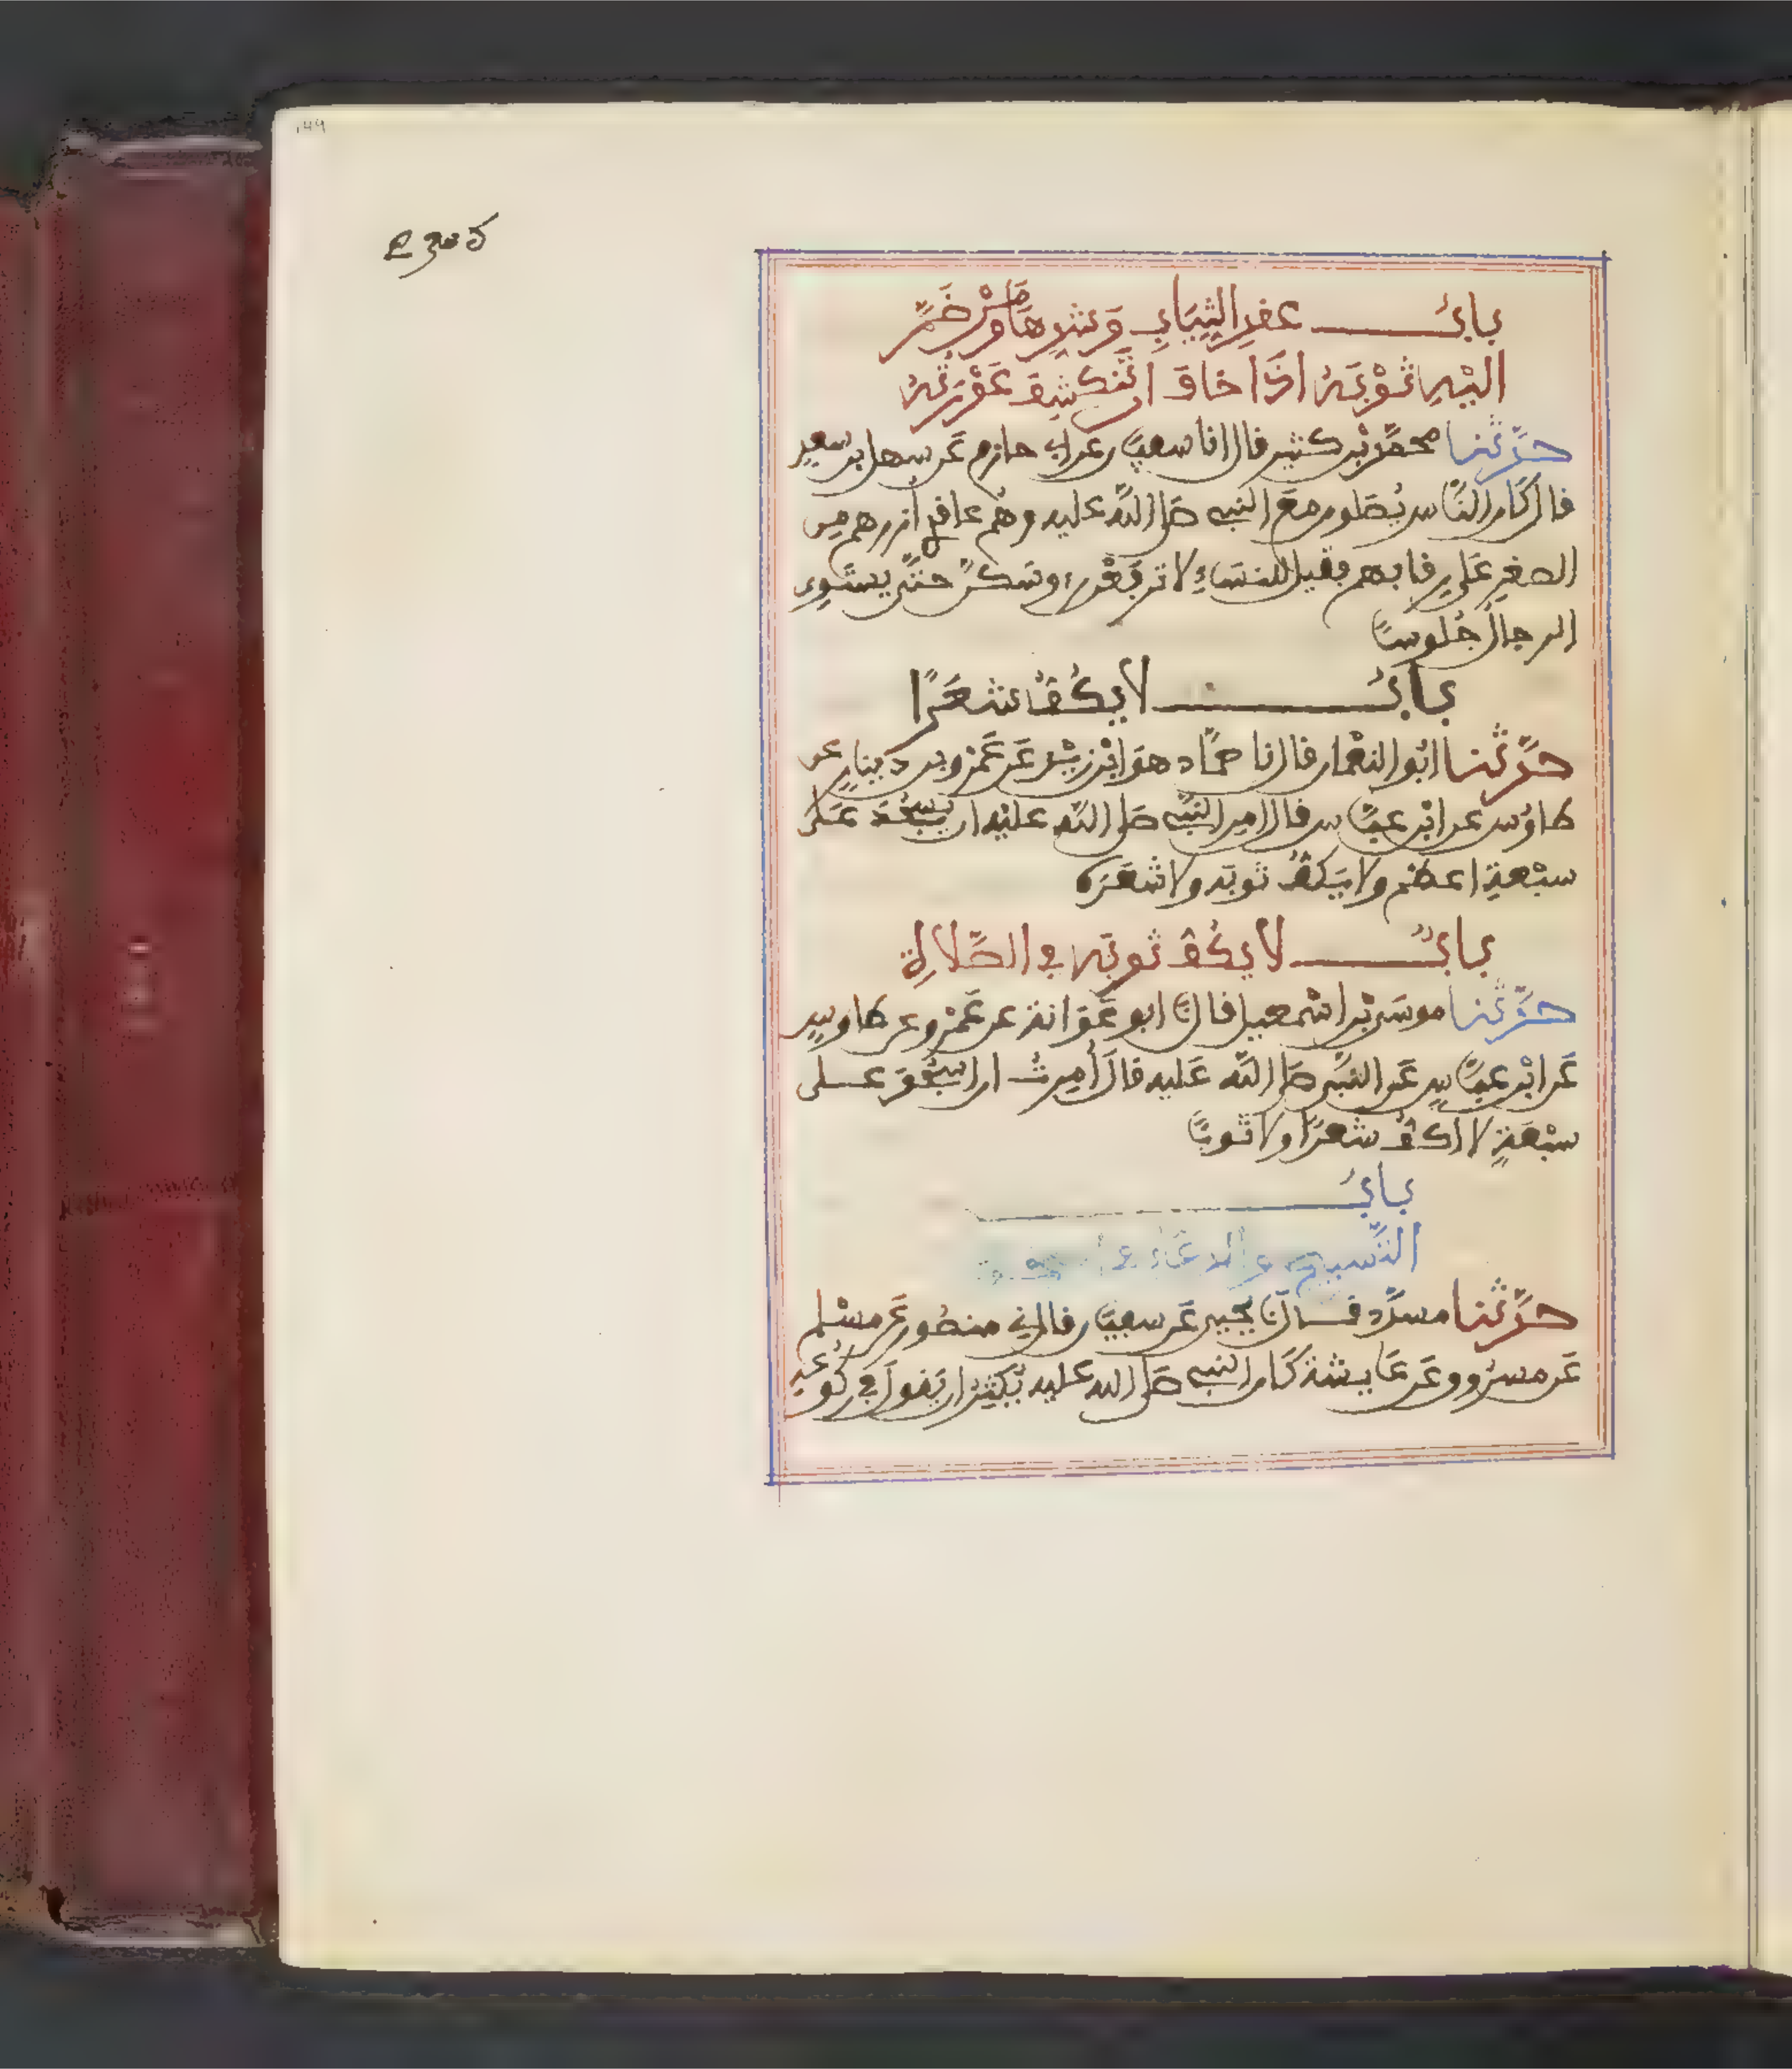 باب عقد الثِّيَابِ وَشدِّهَا وَمَنْ ضَمَّ
اليْهِ ثَوْبَهُ اذَا خَافَ اَن تَنكشِفَ عَوْرَتُهُ
حدَّثنا محمَّد بْن كثير قال انا سفيٰن عن ابي حازم عَن سهل بن سعد
قال كَان النَّاس يُصَلون مَعَ النبي صَلى اللَّه عليه وهُم عاقدي أزرهم من
الصغر عَلى رقابهم فقيل للنسَاءِ لا ترفَعْن رءوسَكنَّ حتَّى يستَوِي
الرجالُ جُلوسًا
بابُ لا يكُفُّ شعَرًا
حدَّثنا ابُو النعْمان قال نا حمَّاد هوَ ابْن زيْد عَن عَمْرو بن دينارٍ عن
طاوُس عن ابْن عبَّاس قال امر النبي صَلى اللَّه عليْه ان يسْجُدَ عَلى
سبْعةِ اعظم ولا يَكفُّ ثوبَه ولا شعَرَه
بابُ لا يكُفُّ ثوبَه في الصَّلاةِ
حدَّثنا موسَى بْن اسْمعيل قال نا ابو عَوَانة عن عَمْرو عن طاوسٍ
عَن ابْن عبَّاسٍ عَن النبي صَلى اللَّه عَليه قالَ أُمِرتُ ان اسْجُدَ عـلى
سبْعَةٍ لا اكفُّ شعرًا ولا ثوبًا
بابُ
التَّسبيح والدعَاء
حدَّثنا مسدَّد قـال نا يحيى عَن سفيٰن قال ني منصُور عَن مسْلم
عَن مسرُوق عَن عَايشة كَان النبي صَلى الله عليه يُكثِرُ ان يَقولَ في ركُوعهِ